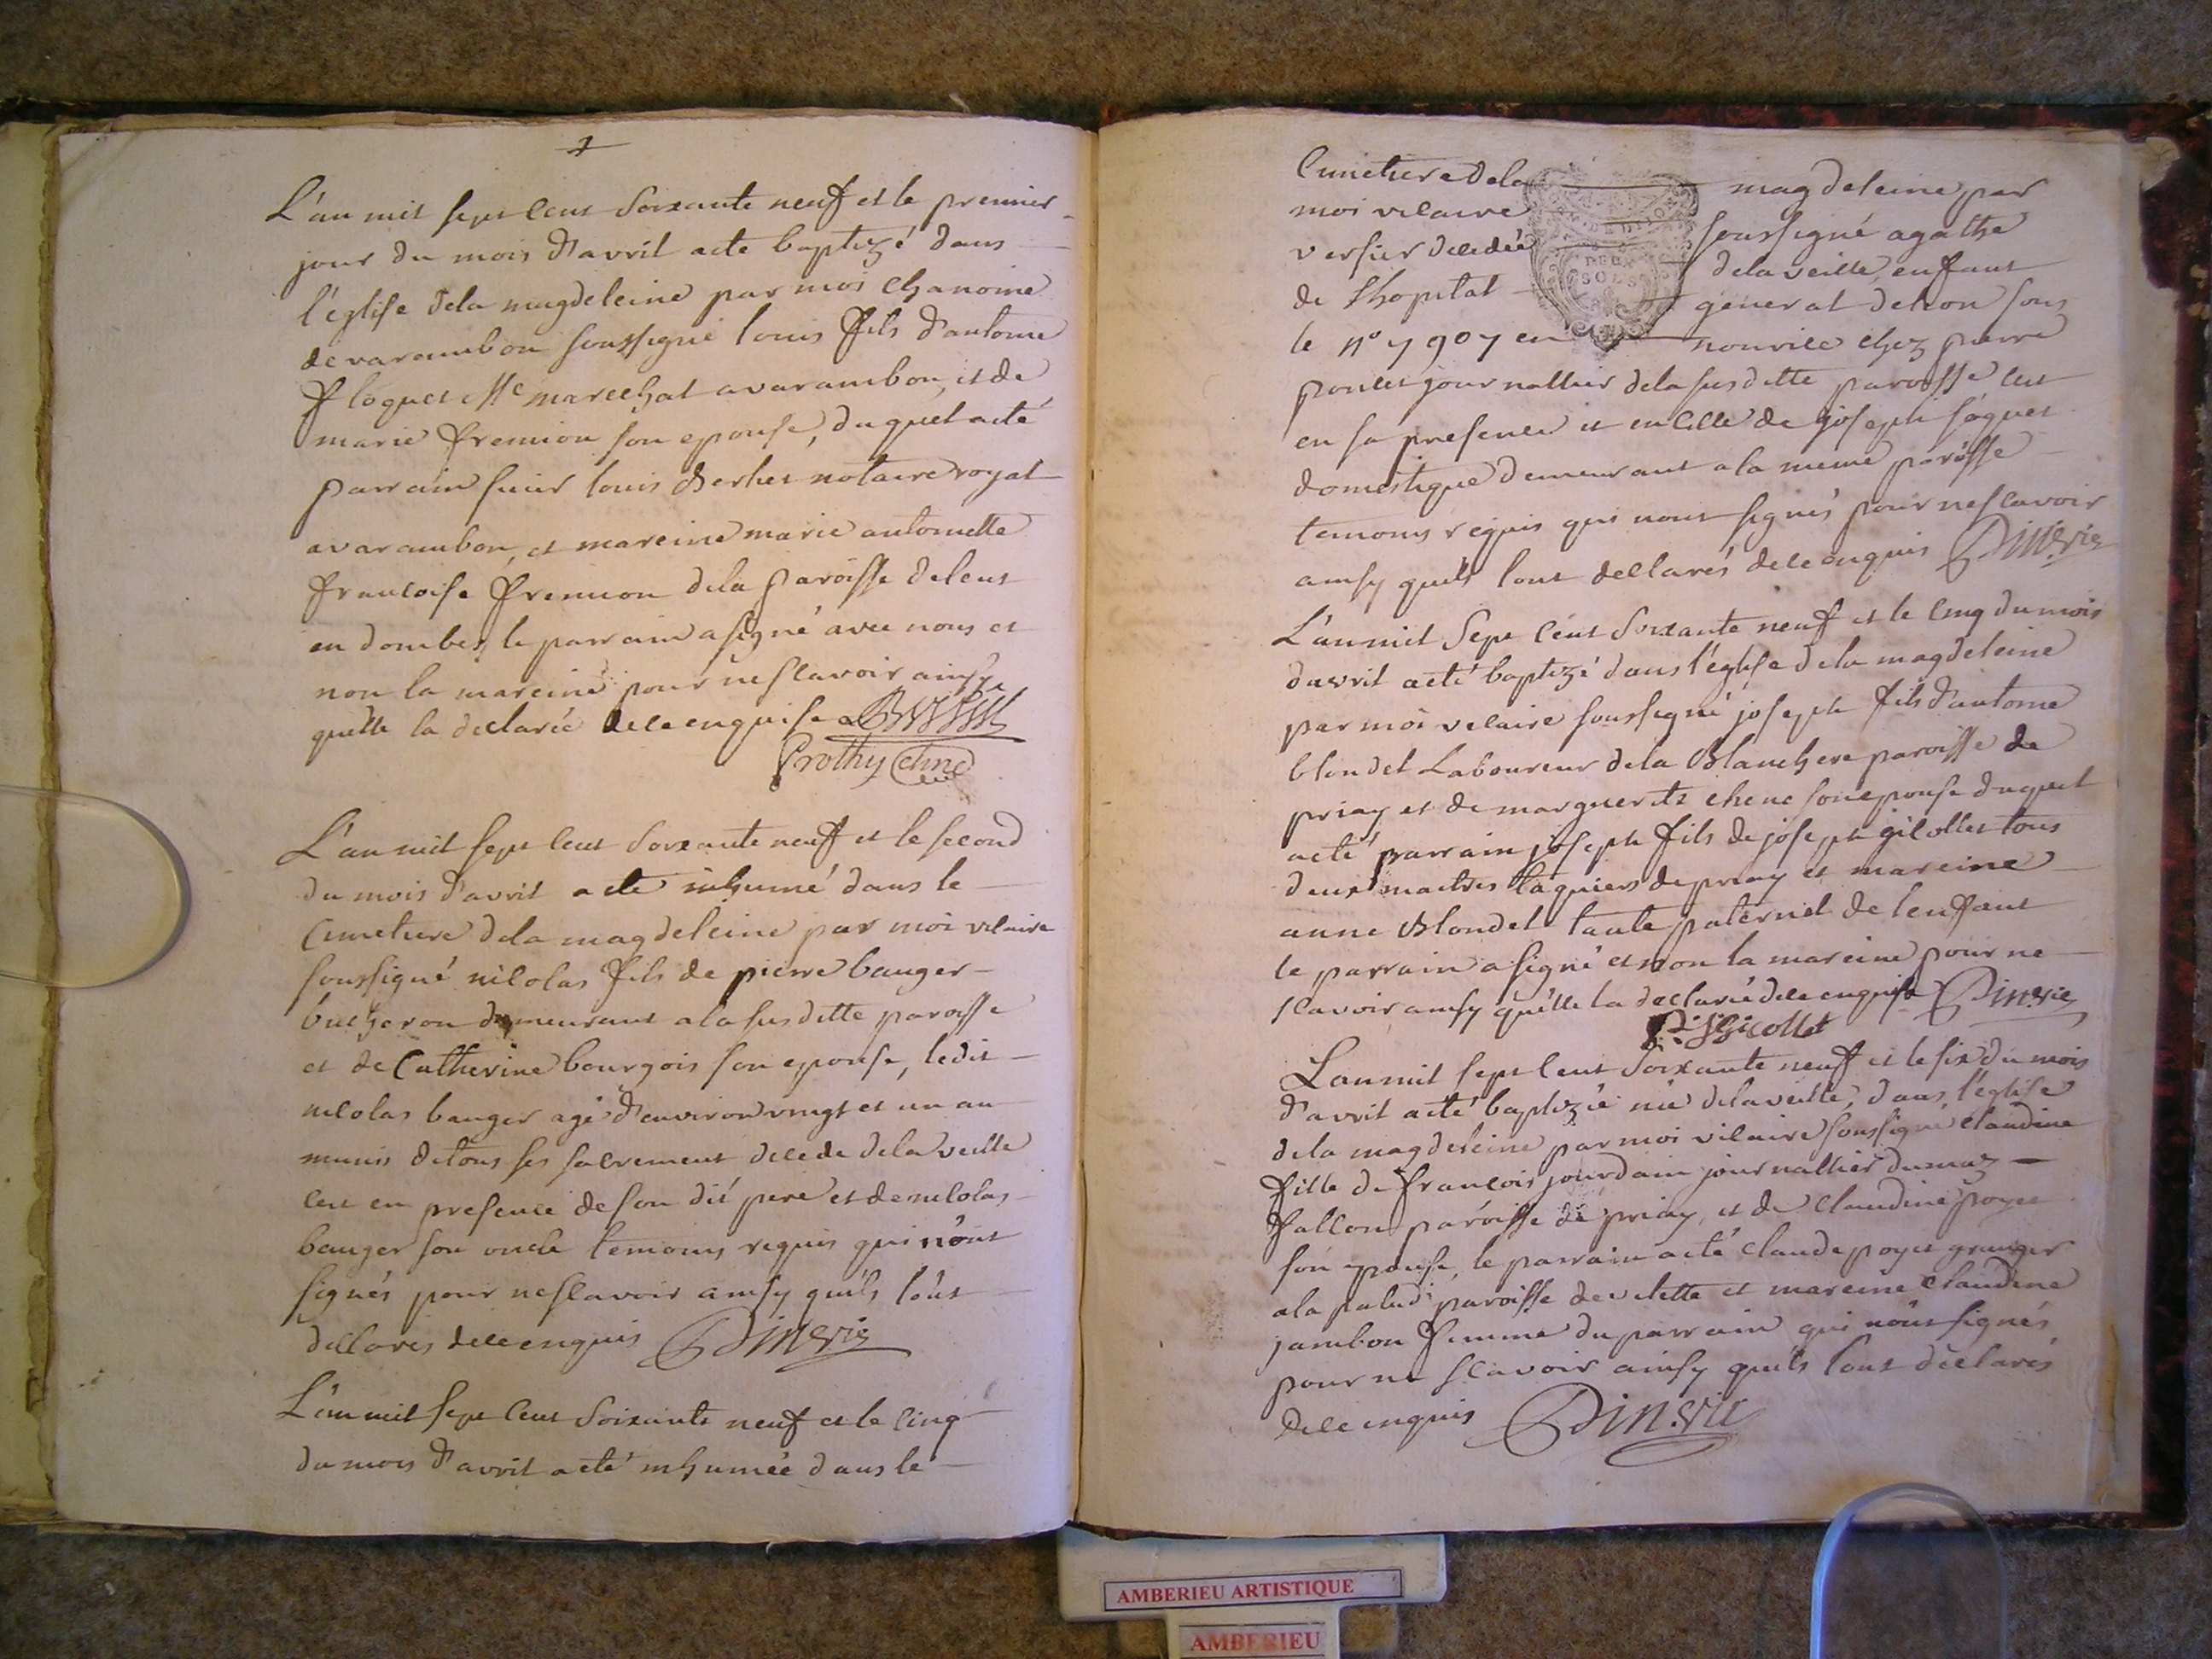 L'an mil sept cent soixante neuf et le premier
jour du mois d'avril a été baptizé dans
l'église de la magdeleine par moi chanoine
de varambon soussigné louis fils d'antoine
floquet Me marechal a varambon, et de
marie fremion son epouse, duquel a été
parrain sieur louis notaire royal
a varambon, et mareine marie antoinette
francoise fremion de la paroisse
en dombes, le parrain a signé avec nous et
non la mareine pour ne scavoir ainsy
quelle la declarée de ce enquise
Prothy chne
L'an mil sept cent soixante neuf et le second
du mois d'avril a été inhumé dans le
cimetiere de la magdeleine par moi vicaire
soussigné nicolas fils de pierre bauger
bucheron demeurant a la susditte paroisse
et de Catherine bourgois son epouse, ledit
nicolas bauger agé d'environ vingt et un an
munis de tous ses sacrement decede de la veille
ce en presence de son dit pere et de nicolas
bauger son oncle temoins requis qui n'ont
signés pour ne scavoir ainsy qu'ils l'ont
declares de ce enquis
L'an mil sept cent soixante neuf et le cinq
du mois d'avril a été inhumée dans le
cimetiere de la magdeleine par
moi vicaire soussigné agathe
versier decedée de la veille, enfant
de l'hopital general de lion sous
le n° 7907 en nourice chez pierre
poncet journallier de la susditte paroisse ce
en sa presence et en celle de joseph
domestique demeurant a la meme paroisse
temoins requis qui n'ont signés pour ne scavoir
ainsy qu'ils l'ont declarés de ce enquis
L'an mil sept cent soixante neuf et le cinq du mois
d'avril a été baptizé dans l'église de la magdeleine
par moi vicaire soussigné joseph fils d'antoine
blondel Laboureur de la Blanchere paroisse de
priay et de marguerite chene son epouse duquel
a été parrain joseph fils de joseph gicollet tous
deux maitres de priay et mareine
anne Blondel tante paternel de l'enfant
le parrain a signé et non la mareine pour ne
scavoir ainsy qu'elle la declarée de ce enquise
Gicollet
L'an mil sept cent soixante neuf et le six du mois
d'avril a été baptizée née de la veille, dans l'église
de la magdeleine par moi vicaire soussigné claudine
fille de francois jourdain journallier du maz
fallcon paroisse de priay, et de claudine poyet
son epouse, le parrain a été claude poyet granger
a la palud paroisse de et mareine claudine
jambon femme du parrain qui n'ont signés
pour ne scavoir ainsy qu'ils l'ont declarés
de ce enquis
DEUX
SOLS
AMBERIEU ARTISTIQUE
AMBERIEU